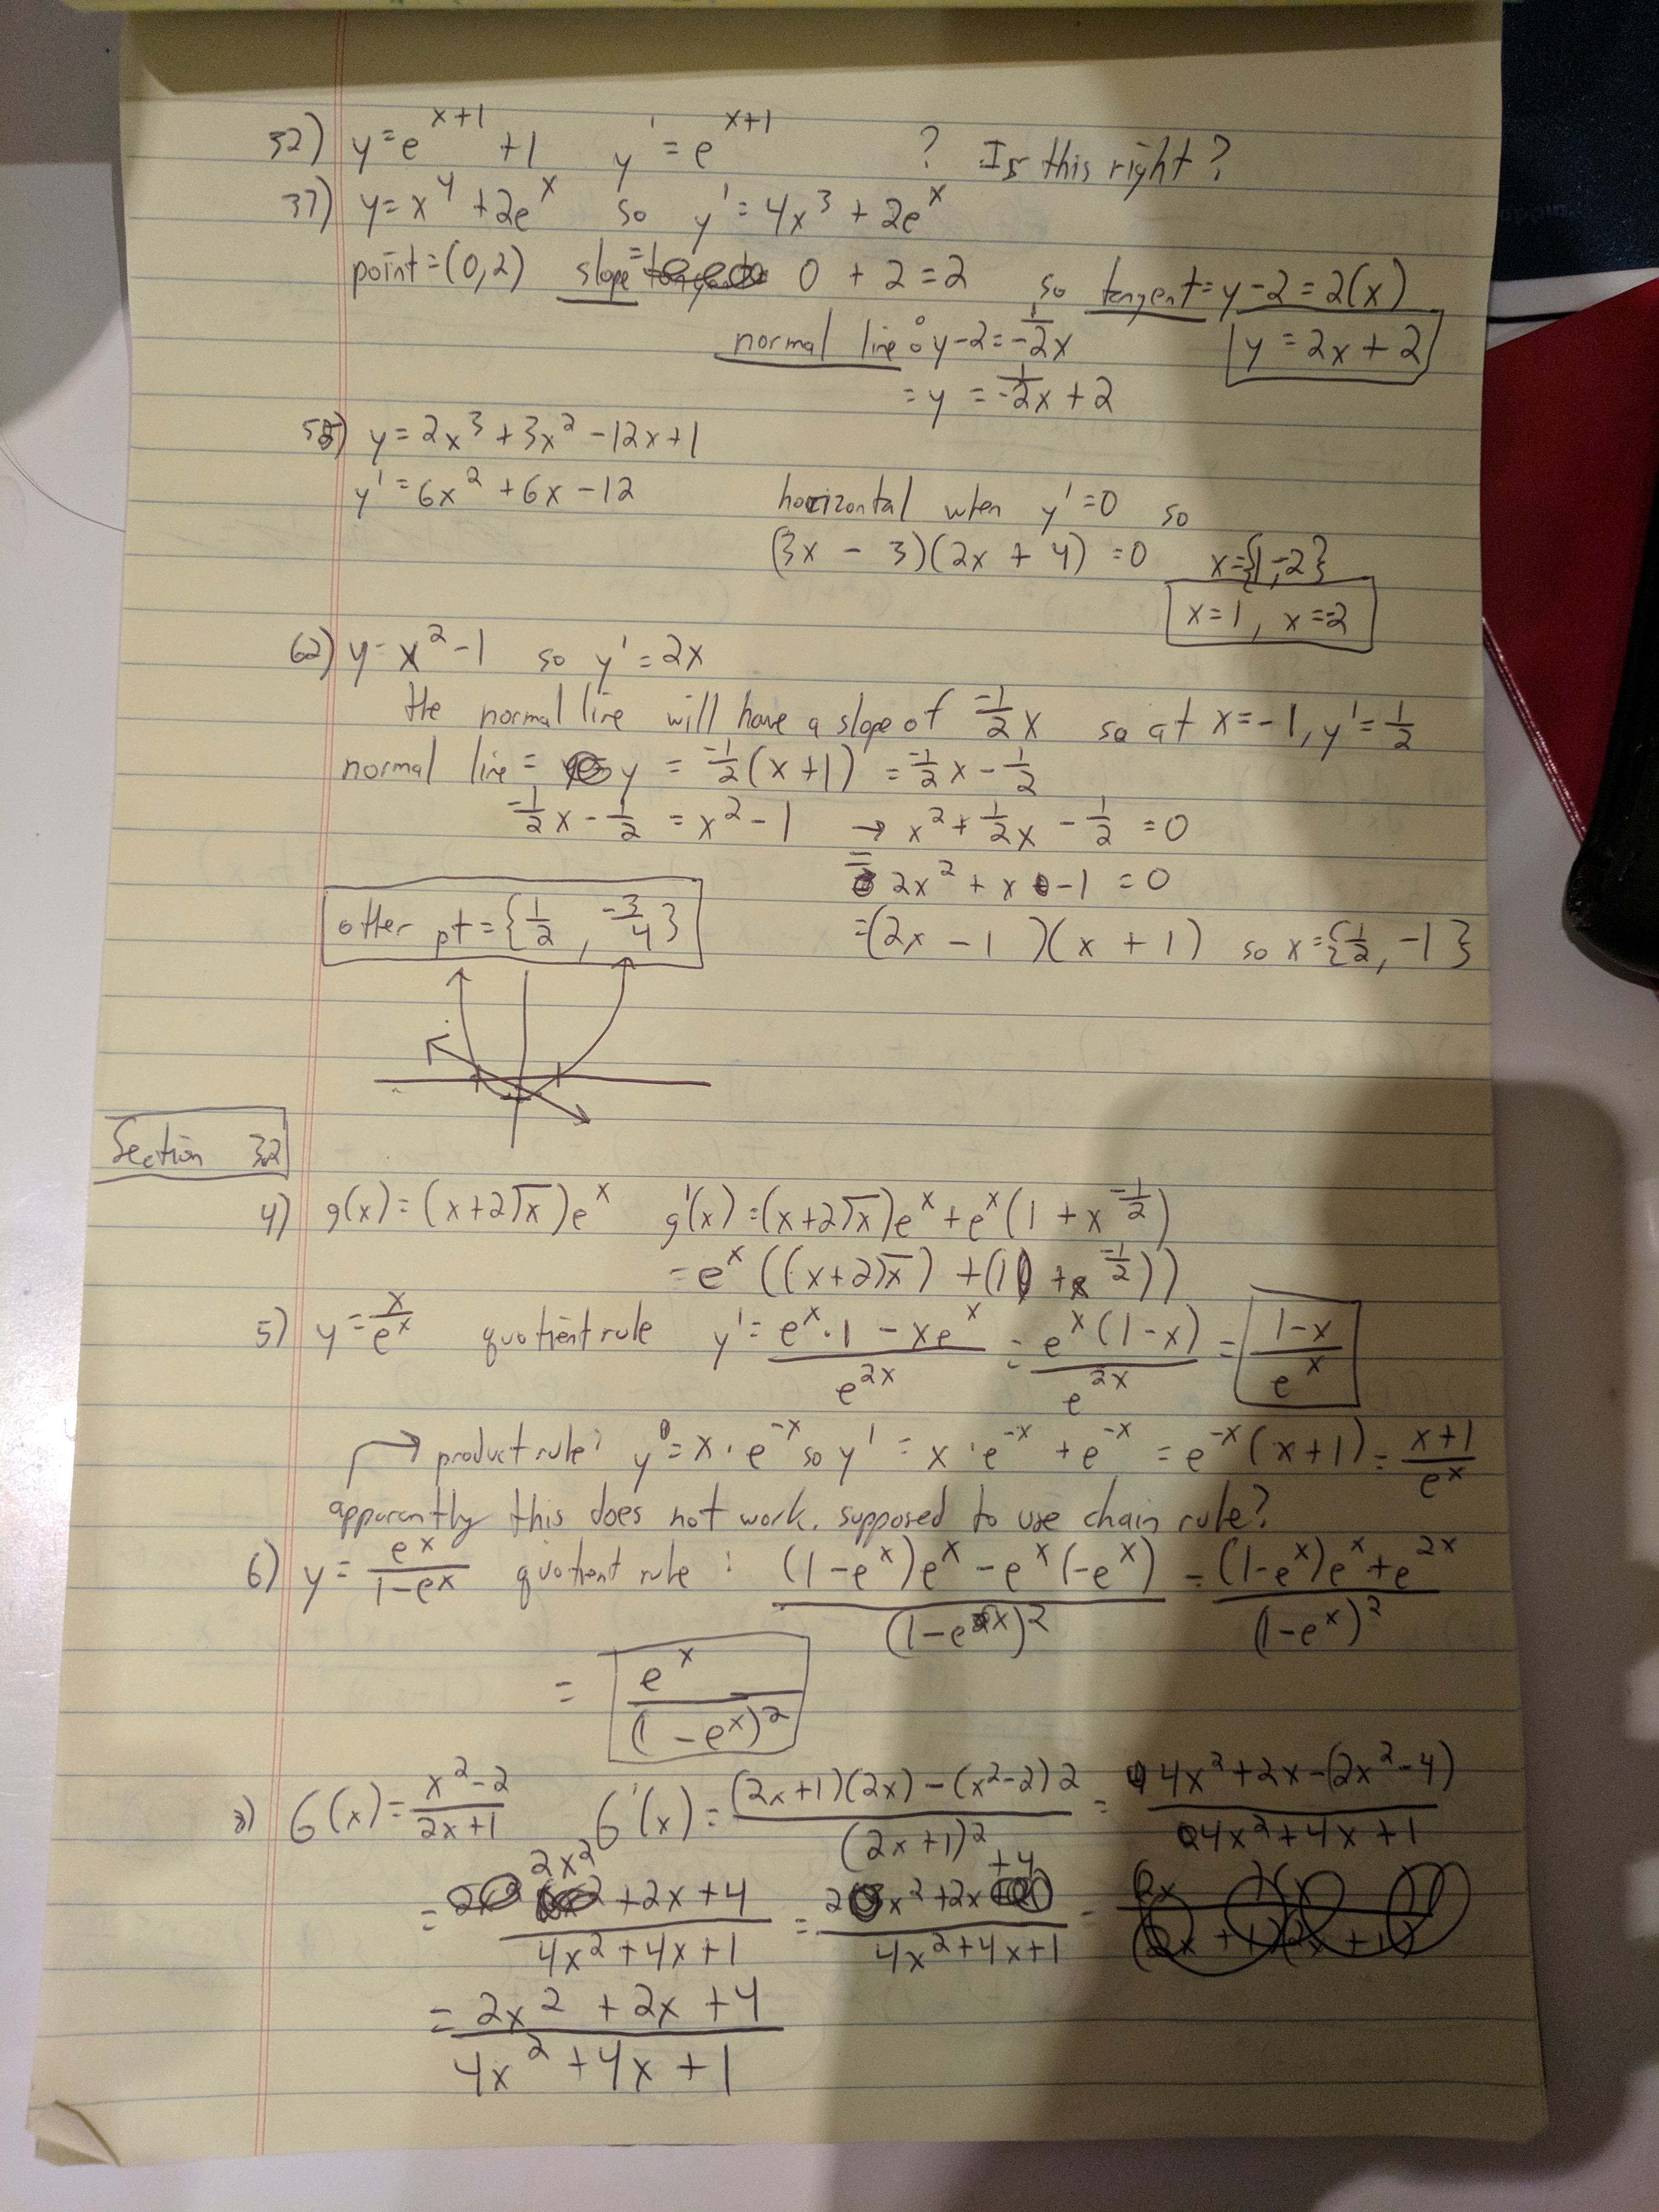 32) y=e^{x+1} +1 y' = e^{x+1} ? Is this right?
37) y=x^4 +2e^x so y' = 4x^3 + 2e^x
point=(0,2) slope= 0 + 2 = 2 so tangent= y-2=2(x)
normal line: y-2=-1/2x y = 2x+2
= y = -1/2x+2
55) y=2x^3 +3x^2 -12x+1
y' = 6x^2 +6x-12 horizontal when y'=0 so
(3x - 3)(2x + 4) =0 x={1,-2}
x=1, x=-2
62) y=x^2-1 so y' = 2x
the normal line will have a slope of -1/2 x so at x=-1, y'=1/2
normal line = y = -1/2(x+1) = -1/2x - 1/2
-1/2x - 1/2 = x^2-1 → x^2+1/2x - 1/2 =0
= 2x^2 + x -1 = 0
other pt={1/2, -3/4} =(2x - 1)(x + 1) so x={1/2, -1}
Section 3.2
4) g(x)=(x+2√x)e^x g'(x)=(x+2√x)e^x+e^x(1+x^{-1/2})
=e^x((x+2√x) +(1 +x^{-1/2}))
5) y=x/e^x quotient rule y'= (e^x·1 - xe^x)/e^{2x} = e^x(1-x)/e^{2x} = (1-x)/e^x
→ product rule: y=x·e^{-x} so y' = x·e^{-x} +e^{-x} = e^{-x}(x+1)= (x+1)/e^x
apparently this does not work. supposed to use chain rule?
6) y= e^x/(1-e^x) quotient rule: ((1-e^x)e^x - e^x(-e^x))/(1-e^x)^2 = ((1-e^x)e^x+e^{2x})/(1-e^x)^2
= e^x/(1-e^x)^2
G(x)= (x^2-2)/(2x+1) G'(x)= ((2x+1)(2x)-(x^2-2)2)/(2x+1)^2 = (4x^2+2x-(2x^2-4))/(4x^2+4x+1)
= (2x^2+2x+4)/(4x^2+4x+1) = (2x^2+2x+4)/(4x^2+4x+1)
= (2x^2 +2x +4)/(4x^2+4x+1)